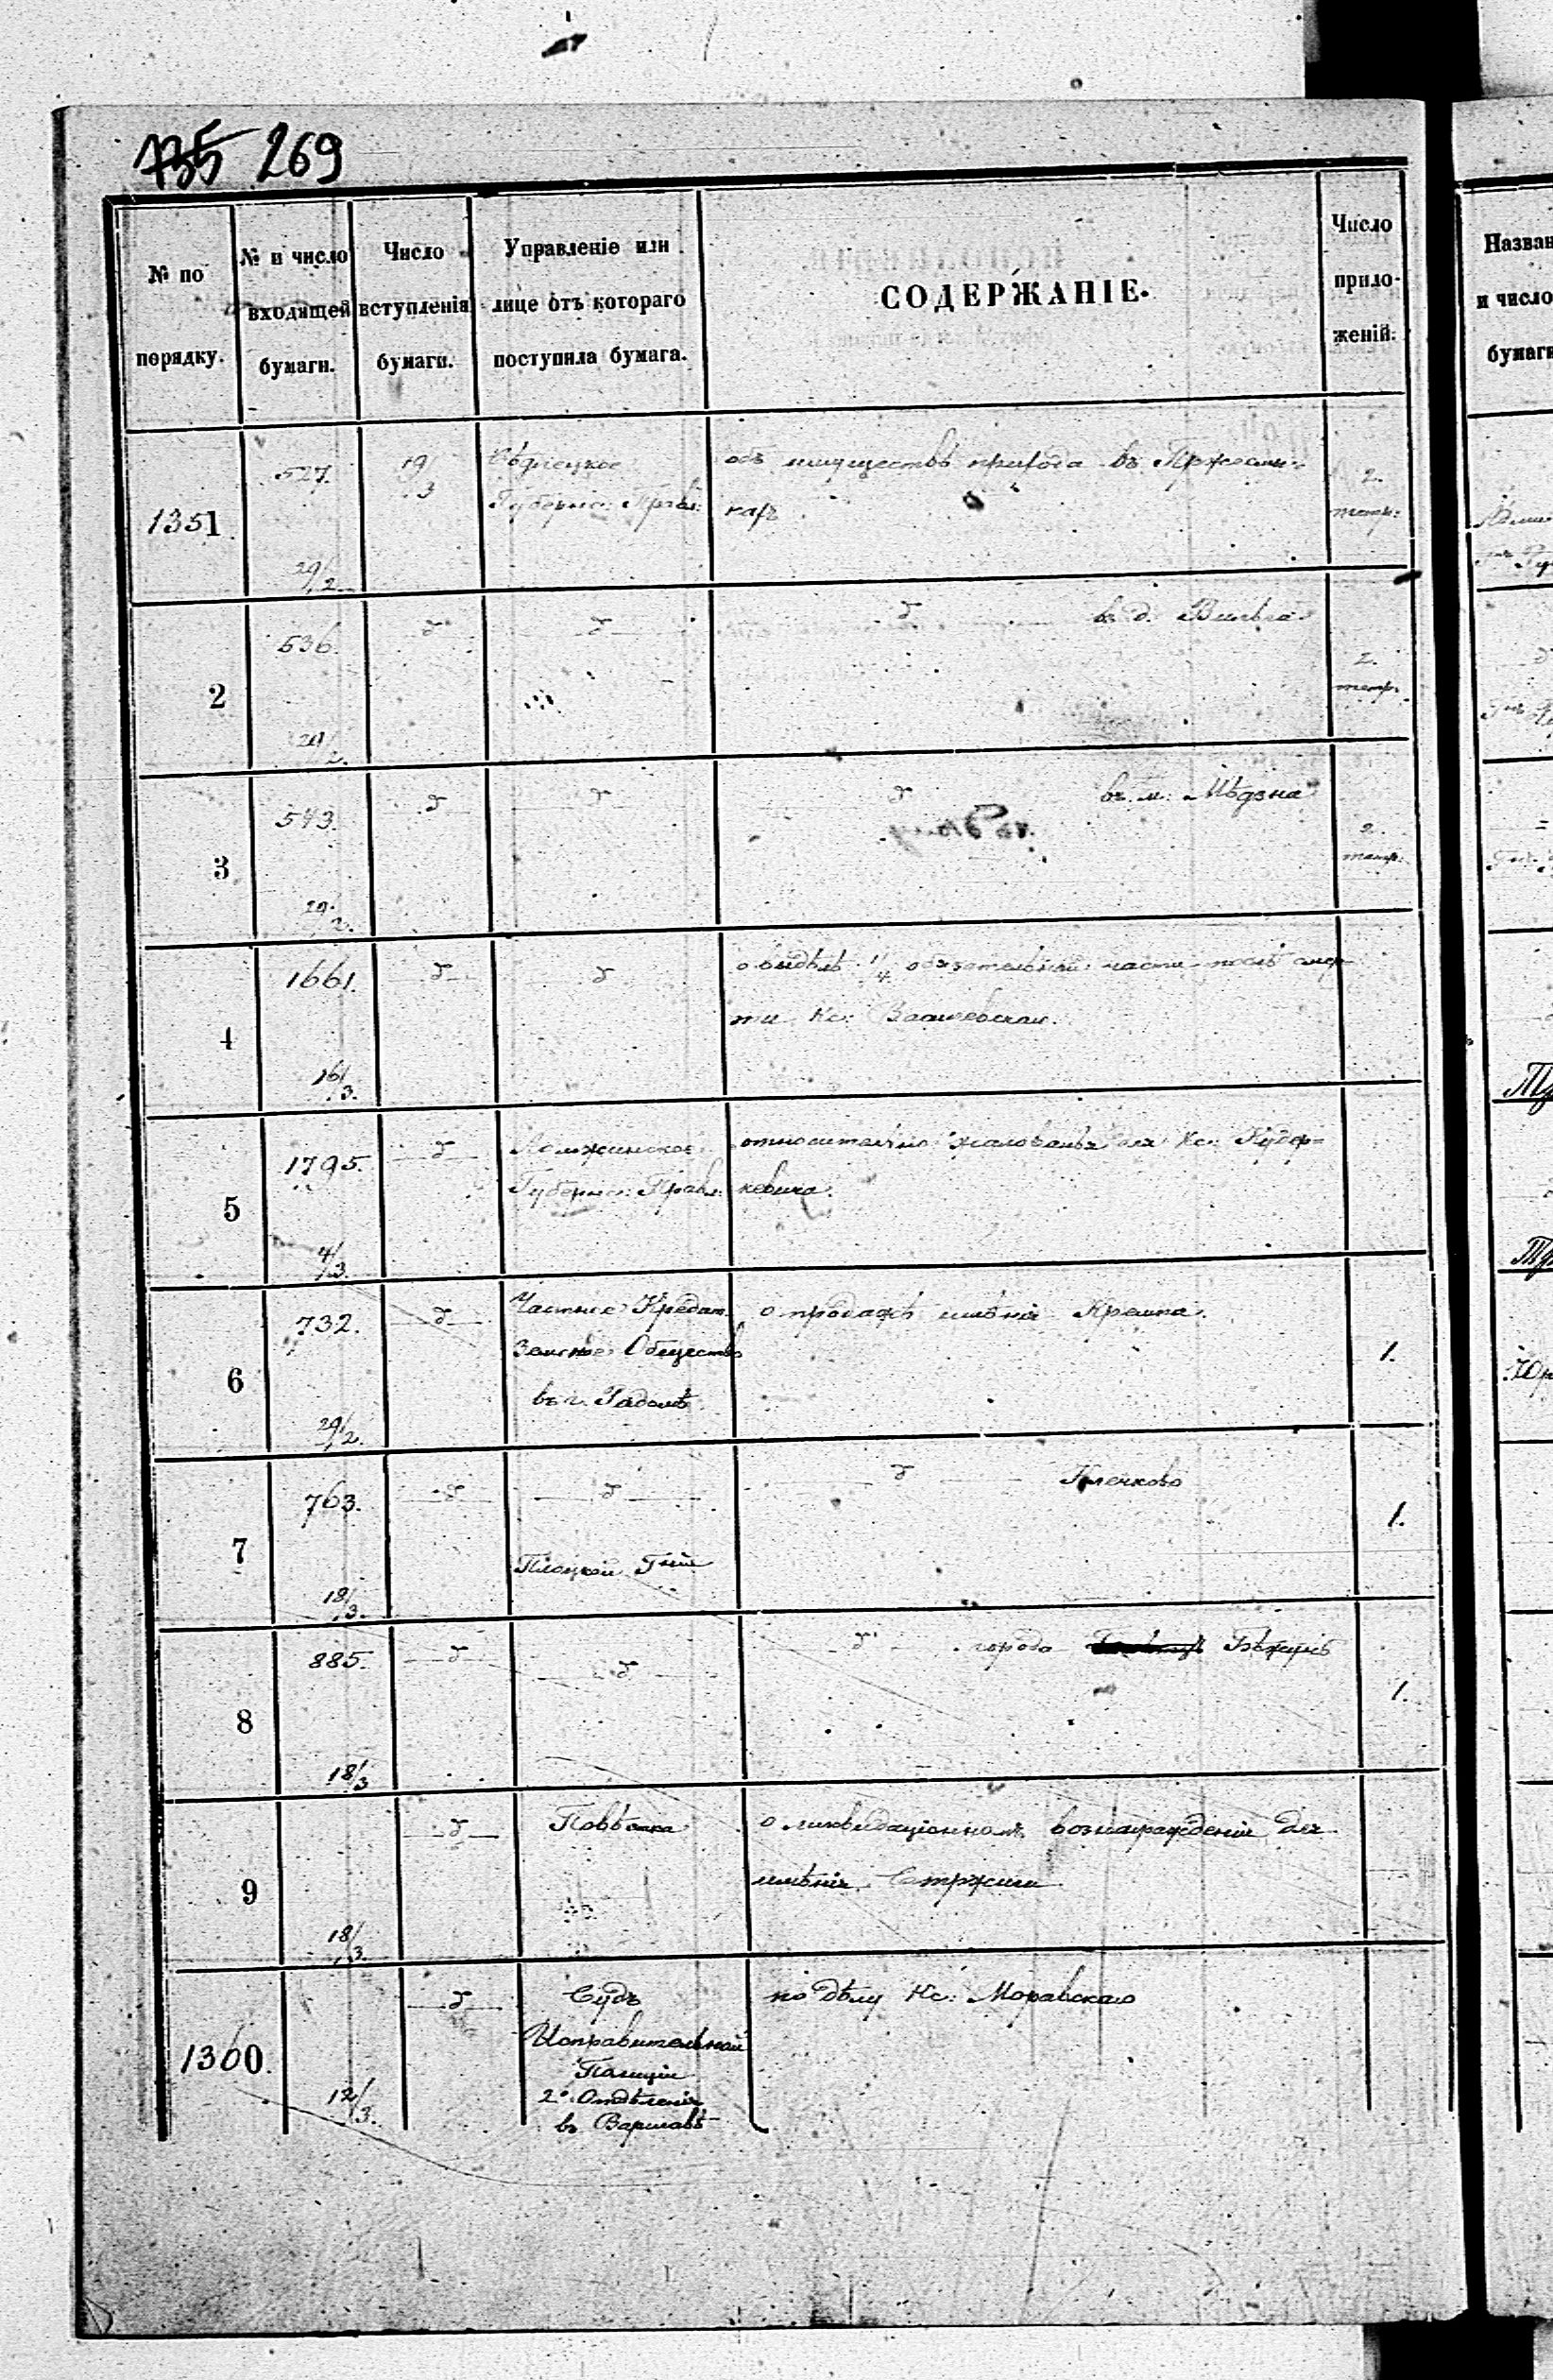 735 269
№ по порядку.
№ и число входящей бумаги.
Число вступленія бумаги.
Управленіе или лице отъ котораго поступила бумага.
СОДЕРЖАНІЕ.
Число приложеній.
1351
527.
29/2.
19/3
Сѣдлецкое
Губернс: Правл:
объ имуществѣ прихода въ
кахъ
2.
тетр:
2
536.
29/2.
д
д
д въ д.
2.
тетр.
3
543.
29/2.
д
д
д въ м: Мѣдзна
2.
тетр:
4
1661.
16/3.
д
д
о выдѣлѣ 1/4 обязательной части послѣ смер-
ти Кс:
5
1795.
4/3.
д
Ломжинское
Губернс: Правл:
относительно жалованья для Кс:
кевича.
6
732.
29/2.
д
Частное Кредит.
Земское Общество
въ г. Радомѣ
о продажѣ имѣнія Кремпа.
1.
7
763.
18/3.
д
д
Плоцкой Гніи
д Клечково
1.
8
885.
18/3
д
д
д города
1.
9
18/3.
д
Повѣстка
о ликвидаціонномъ вознагражденіи для
имѣнія
1360.
12/3.
д
Судъ
Исправительной
Полиціи
2º Отдѣленія
въ Варшавѣ
по дѣлу Кс: Моравскаго
Назван
и число
бумаги